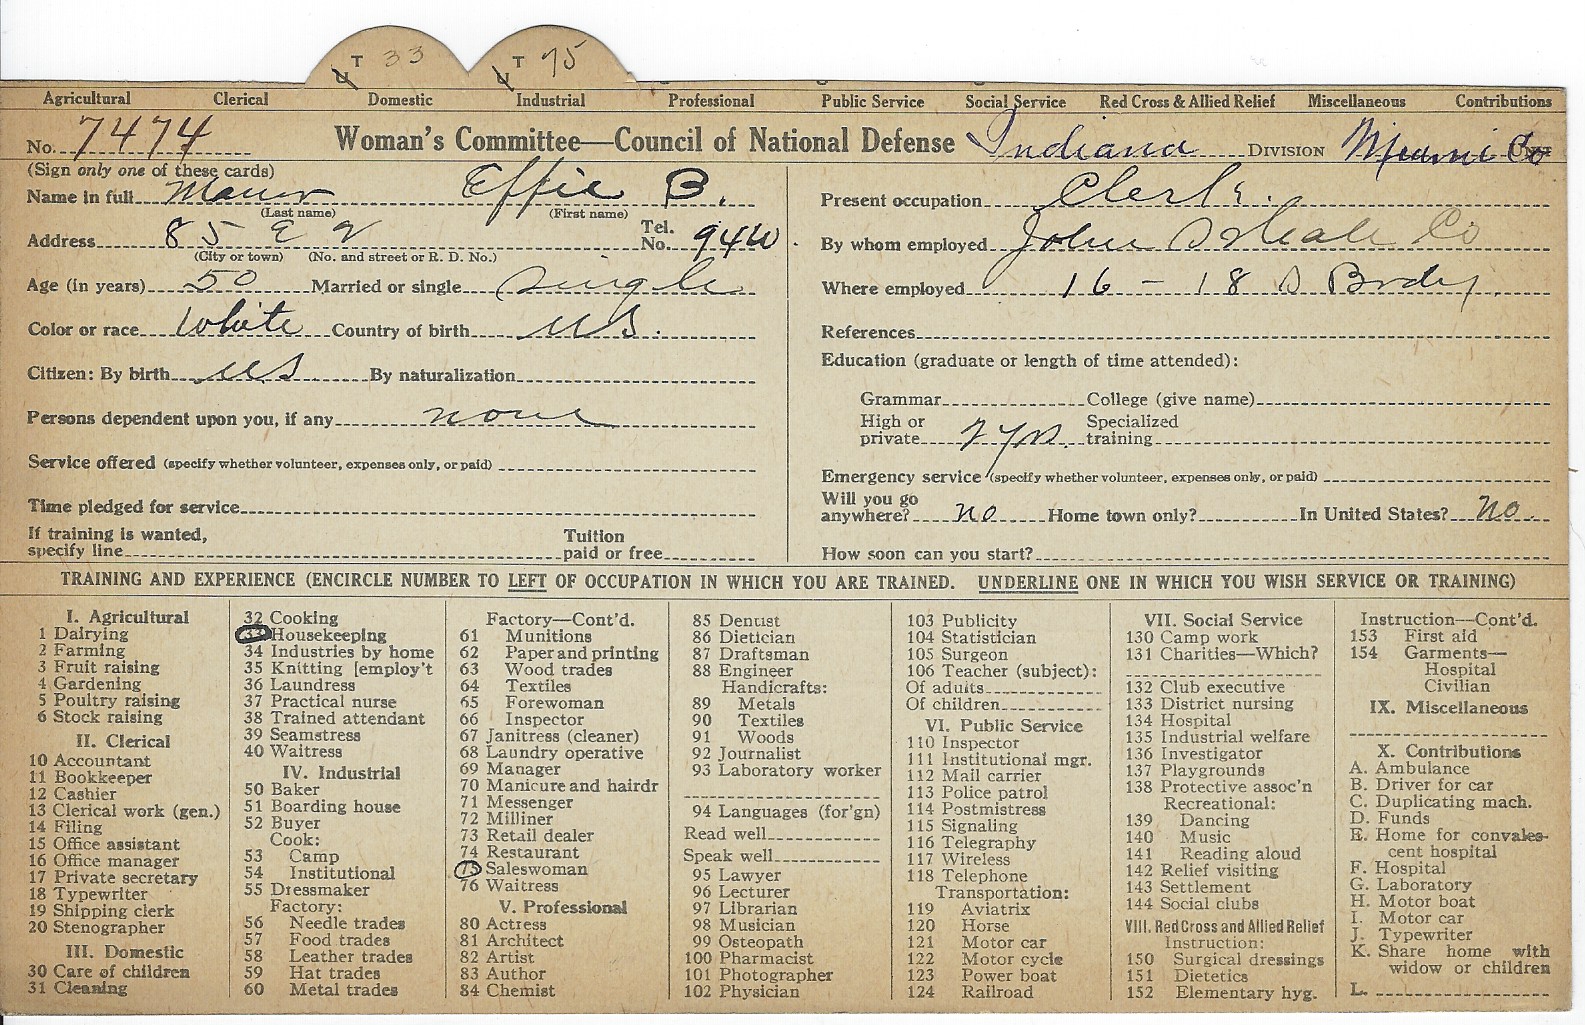 T 33 T 75
Agricultural Clerical Domestic Industrial Professional Public Service Social Service Red Cross & Allied Relief Miscellaneous Contributions
No. 7474 Woman's Committee—Council of National Defense Indiana DIVISION Miami Co
(Sign only one of these cards)
Name in full Effie B.
(Last name) (First name)
Address 85 E Tel. No. 94W
(City or town) (No. and street or R. D. No.)
Age (in years) 50 Married or single Single
Color or race White Country of birth U.S.
Citizen: By birth U.S By naturalization
Persons dependent upon you, if any none
Service offered (specify whether volunteer, expenses only, or paid)
Time pledged for service
If training is wanted, specify line Tuition paid or free
Present occupation Clerk.
By whom employed Co
Where employed 16 - 18 S Brdy
References
Education (graduate or length of time attended):
Grammar College (give name)
High or private 2 yrs. Specialized training
Emergency service (specify whether volunteer, expenses only, or paid)
Will you go anywhere? no Home town only? In United States? no.
How soon can you start?
TRAINING AND EXPERIENCE (ENCIRCLE NUMBER TO LEFT OF OCCUPATION IN WHICH YOU ARE TRAINED. UNDERLINE ONE IN WHICH YOU WISH SERVICE OR TRAINING)
I. Agricultural
1 Dairying
2 Farming
3 Fruit raising
4 Gardening
5 Poultry raising
6 Stock raising
II. Clerical
10 Accountant
11 Bookkeeper
12 Cashier
13 Clerical work (gen.)
14 Filing
15 Office assistant
16 Office manager
17 Private secretary
18 Typewriter
19 Shipping clerk
20 Stenographer
III. Domestic
30 Care of children
31 Cleaning
32 Cooking
33 Housekeeping
34 Industries by home
35 Knitting [employ't
36 Laundress
37 Practical nurse
38 Trained attendant
39 Seamstress
40 Waitress
IV. Industrial
50 Baker
51 Boarding house
52 Buyer
Cook:
53 Camp
54 Institutional
55 Dressmaker
Factory:
56 Needle trades
57 Food trades
58 Leather trades
59 Hat trades
60 Metal trades
Factory—Cont'd.
61 Munitions
62 Paper and printing
63 Wood trades
64 Textiles
65 Forewoman
66 Inspector
67 Janitress (cleaner)
68 Laundry operative
69 Manager
70 Manicure and hairdr
71 Messenger
72 Milliner
73 Retail dealer
74 Restaurant
75 Saleswoman
76 Waitress
V. Professional
80 Actress
81 Architect
82 Artist
83 Author
84 Chemist
85 Dentist
86 Dietician
87 Draftsman
88 Engineer
Handicrafts:
89 Metals
90 Textiles
91 Woods
92 Journalist
93 Laboratory worker
94 Languages (for'gn)
Read well
Speak well
95 Lawyer
96 Lecturer
97 Librarian
98 Musician
99 Osteopath
100 Pharmacist
101 Photographer
102 Physician
103 Publicity
104 Statistician
105 Surgeon
106 Teacher (subject):
Of adults
Of children
VI. Public Service
110 Inspector
111 Institutional mgr.
112 Mail carrier
113 Police patrol
114 Postmistress
115 Signaling
116 Telegraphy
117 Wireless
118 Telephone
Transportation:
119 Aviatrix
120 Horse
121 Motor car
122 Motor cycle
123 Power boat
124 Railroad
VII. Social Service
130 Camp work
131 Charities—Which?
132 Club executive
133 District nursing
134 Hospital
135 Industrial welfare
136 Investigator
137 Playgrounds
138 Protective assoc'n
Recreational:
139 Dancing
140 Music
141 Reading aloud
142 Relief visiting
143 Settlement
144 Social clubs
VIII. Red Cross and Allied Relief
Instruction:
150 Surgical dressings
151 Dietetics
152 Elementary hyg.
Instruction—Cont'd.
153 First aid
154 Garments—
Hospital
Civilian
IX. Miscellaneous
X. Contributions
A. Ambulance
B. Driver for car
C. Duplicating mach.
D. Funds
E. Home for convales-
cent hospital
F. Hospital
G. Laboratory
H. Motor boat
I. Motor car
J. Typewriter
K. Share home with
widow or children
L.